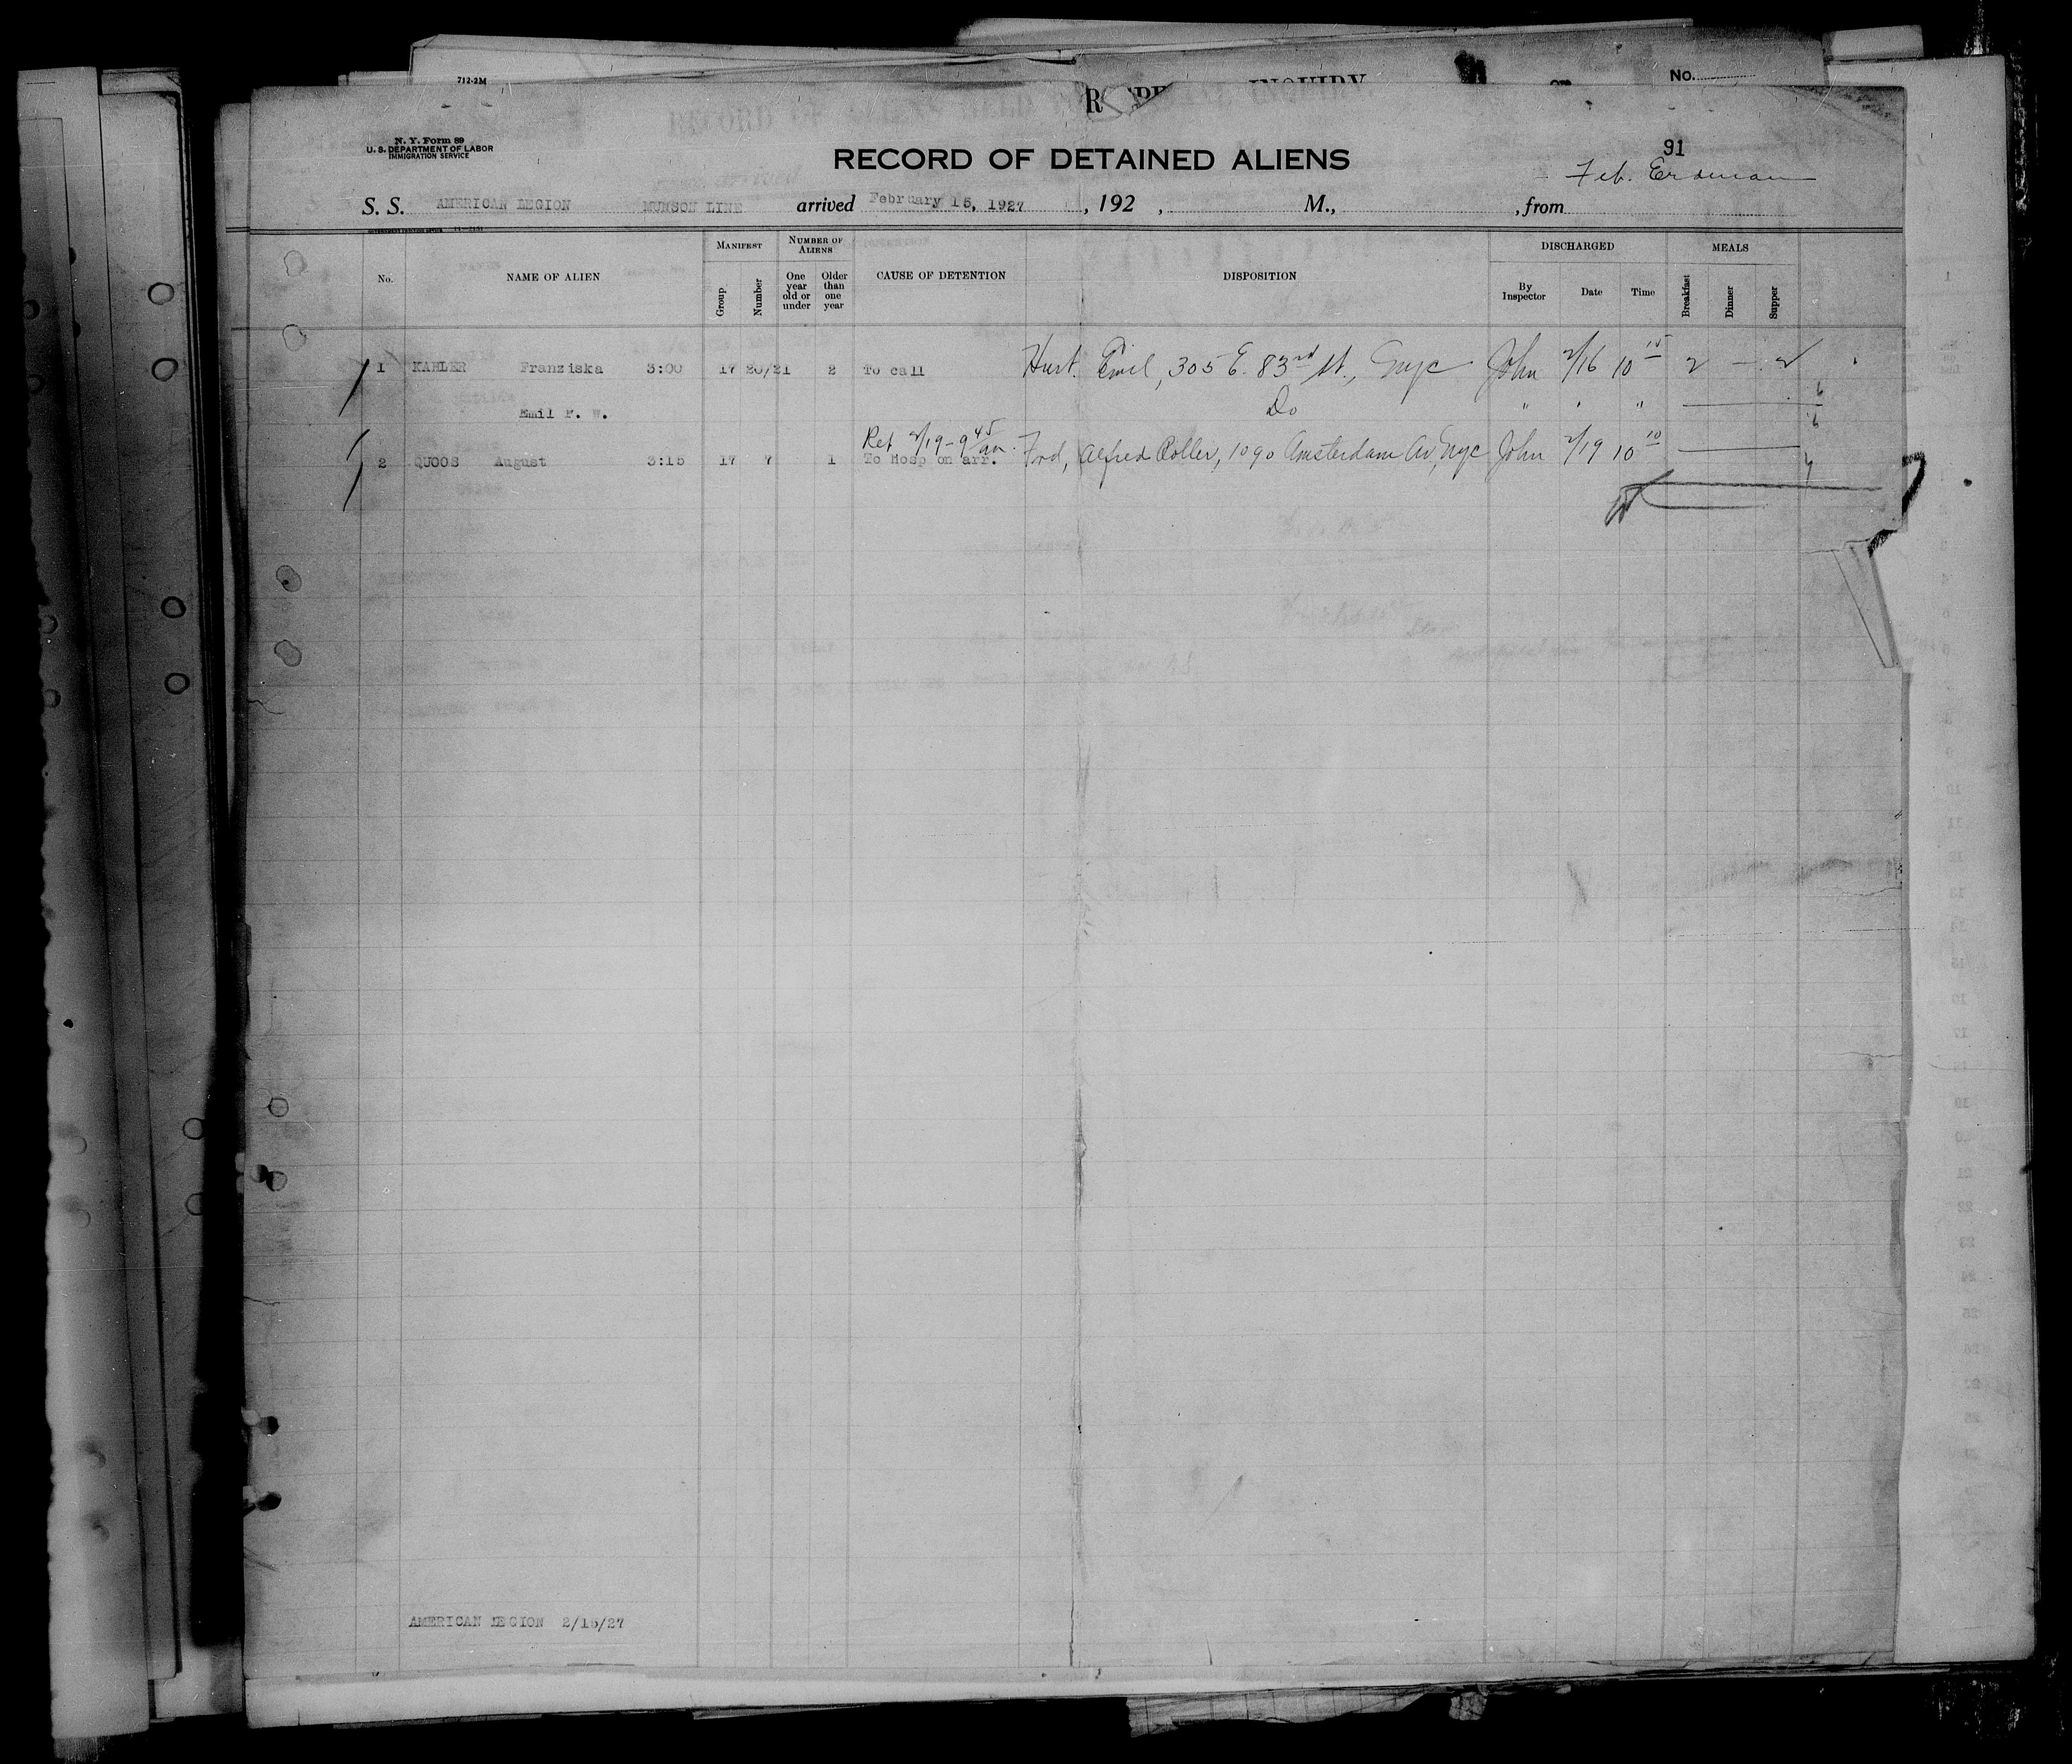 712-2M
INQUIRY
No.
N. Y. Form 89
U. S. DEPARTMENT OF LABOR
IMMIGRATION SERVICE
RECORD OF DETAINED ALIENS
91
Feb. Erdman
S. S. AMERICAN LEGION MUNSON LINE arrived February 15, 1927, 192 , M., , from
No. NAME OF ALIEN MANIFEST Group Number NUMBER OF ALIENS One year old or under Older than one year CAUSE OF DETENTION DISPOSITION DISCHARGED By Inspector Date Time MEALS Breakfast Dinner Supper
1 KAHLER Franziska 3:00 17 20/21 2 To call Husb. Emil, 305 E. 83rd St., Nyc John 2/16 10 15 2 — 2
Emil F. W. Do " " "
Ret 2/19 - 9 45 am.
2 QUOOS August 3:15 17 7 1 To Hosp on arr. Frd, Alfred Roller, 1090 Amsterdam Av, Nyc John 2/19 10 10
AMERICAN LEGION 2/15/27